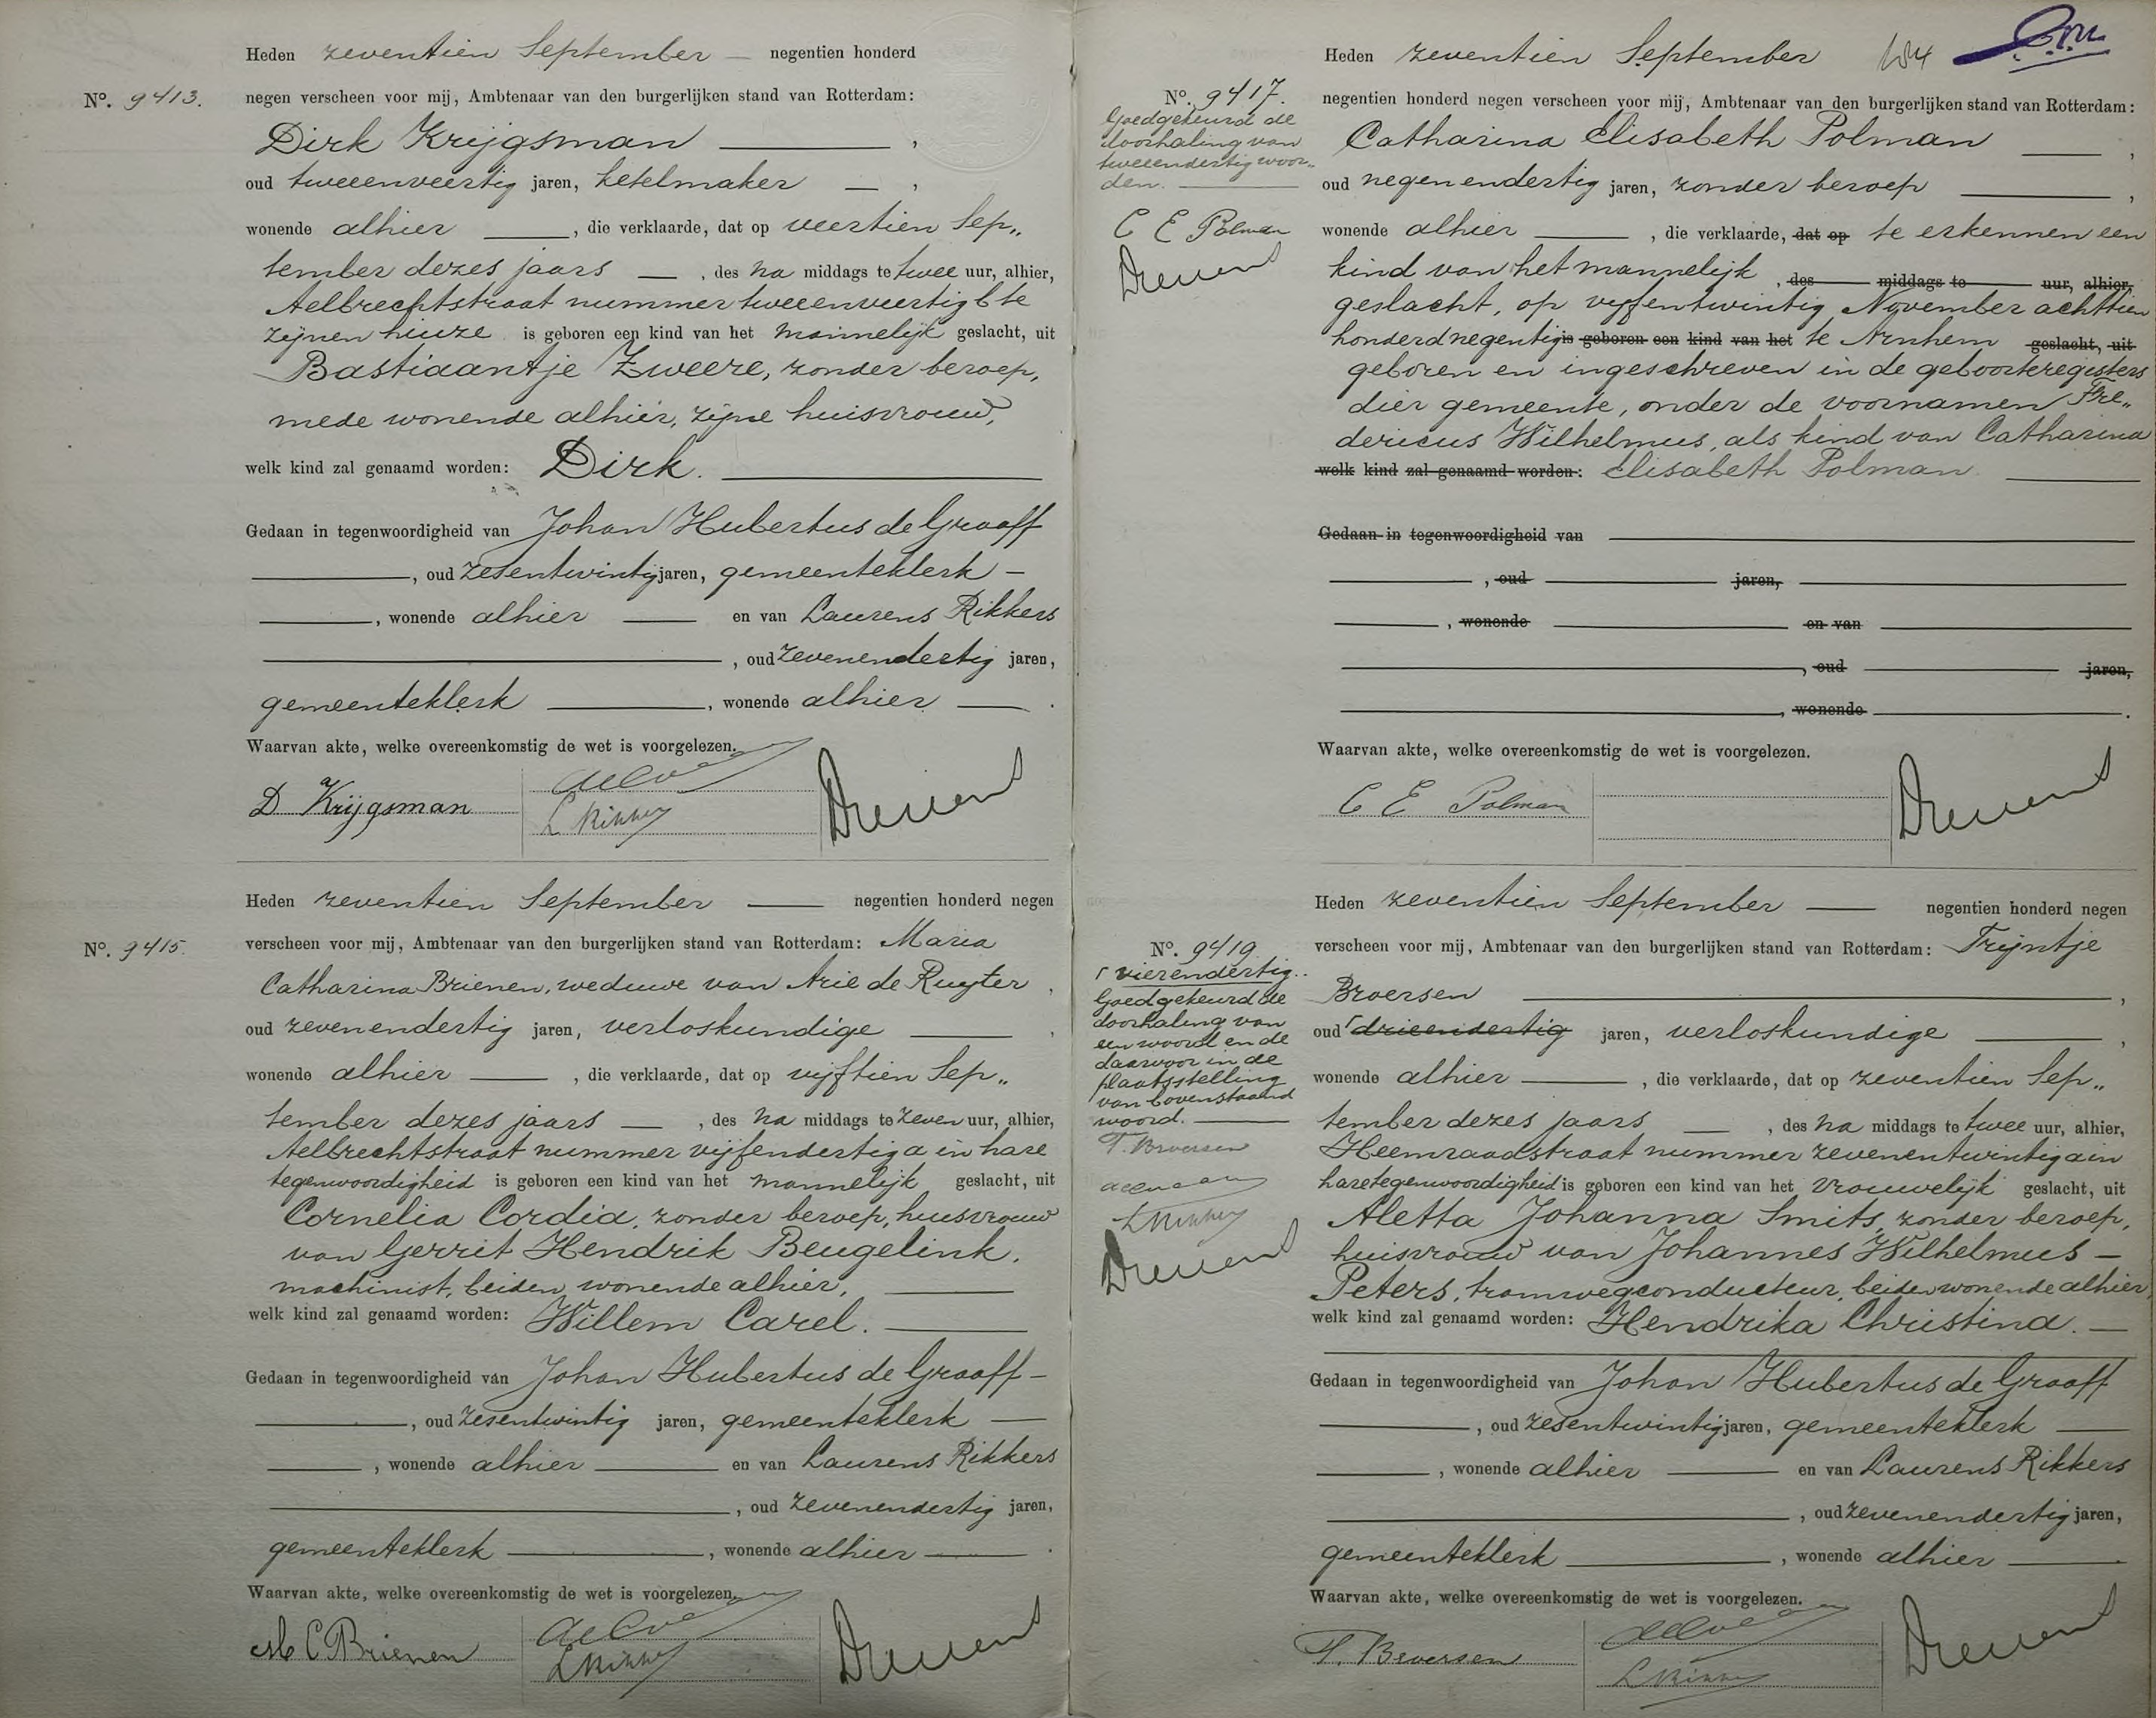 Heden zeventien September — negentien honderd
No. 9413. negen verscheen voor mij, Ambtenaar van den burgerlijken stand van Rotterdam:
Dirk Krijgsman ,
oud tweeenveertig jaren, ketelmaker — ,
wonende alhier , die verklaarde, dat op veertien Sep„
tember dezes jaars — , des na middags te twee uur, alhier,
Aelbrechtstraat nummer tweeenveertig b te
zijnen huize is geboren een kind van het mannelijk geslacht, uit
Bastiaantje Zweere, zonder beroep,
mede wonende alhier, zijne huisvrouw,
welk kind zal genaamd worden: Dirk.
Gedaan in tegenwoordigheid van Johan Hubertus de Graaff
, oud zesentwintig jaren, gemeenteklerk —
, wonende alhier en van Laurens Rikkers
, oud zevenendertig jaren,
gemeenteklerk , wonende alhier — .
Waarvan akte, welke overeenkomstig de wet is voorgelezen.
D Krijgsman
L Rikkers
Heden zeventien September — negentien honderd negen
No. 9415. verscheen voor mij, Ambtenaar van den burgerlijken stand van Rotterdam: Maria
Catharina Brienen, weduwe van Arie de Ruyter ,
oud zevenendertig jaren, verloskundige ,
wonende alhier , die verklaarde, dat op vijftien Sep„
tember dezes jaars — , des na middags te zeven uur, alhier,
Aelbrechtstraat nummer vijfendertig a in hare
tegenwoordigheid is geboren een kind van het mannelijk geslacht, uit
Cornelia Cordia, zonder beroep, huisvrouw
van Gerrit Hendrik Beugelink,
machinist, beiden wonende alhier,
welk kind zal genaamd worden: Willem Carel.
Gedaan in tegenwoordigheid van Johan Hubertus de Graaff —
, oud zesentwintig jaren, gemeenteklerk —
, wonende alhier en van Laurens Rikkers
, oud zevenendertig jaren,
gemeenteklerk , wonende alhier — .
Waarvan akte, welke overeenkomstig de wet is voorgelezen.
M C Brienen
L Rikkers
Heden zeventien September 184
No. 9417.
Goedgekeurd de
doorhaling van
tweeendertig woor„
den.
C E Polman
negentien honderd negen verscheen voor mij, Ambtenaar van den burgerlijken stand van Rotterdam:
Catharina Elisabeth Polman — ,
oud negenendertig jaren, zonder beroep ,
wonende alhier , die verklaarde, dat op te erkennen een
kind van het mannelijk , des middags te uur, alhier,
geslacht, op vijfentwintig November achttien
honderd negentig is geboren een kind van het te Arnhem geslacht, uit
geboren en ingeschreven in de geboorteregisters
dier gemeente, onder de voornamen Fre„
dericus Wilhelmus, als kind van Catharina
welk kind zal genaamd worden: Elisabeth Polman
Gedaan in tegenwoordigheid van
, oud jaren,
, wonende en van
, oud jaren,
, wonende .
Waarvan akte, welke overeenkomstig de wet is voorgelezen.
C E Polman
Heden zeventien September — negentien honderd negen
No. 9419.
vierendertig.
Goedgekeurd de
doorhaling van
een woord en de
daarvoor in de
plaatsstelling
van bovenstaand
woord.
T. Broersen
L Rikkers
verscheen voor mij, Ambtenaar van den burgerlijken stand van Rotterdam: Trijntje
Broersen ,
oud drieendertig jaren, verloskundige ,
wonende alhier , die verklaarde, dat op zeventien Sep„
tember dezes jaars — , des na middags te twee uur, alhier,
Heemraadstraat nummer zevenentwintig a in
hare tegenwoordigheid is geboren een kind van het vrouwelijk geslacht, uit
Aletta Johanna Smits, zonder beroep,
huisvrouw van Johannes Wilhelmus —
Peters, tramwegconducteur, beiden wonende alhier,
welk kind zal genaamd worden: Hendrika Christina. —
Gedaan in tegenwoordigheid van Johan Hubertus de Graaff
, oud zesentwintig jaren, gemeenteklerk
, wonende alhier en van Laurens Rikkers
, oud zevenendertig jaren,
gemeenteklerk , wonende alhier
Waarvan akte, welke overeenkomstig de wet is voorgelezen.
T. Broersen
L Rikkers